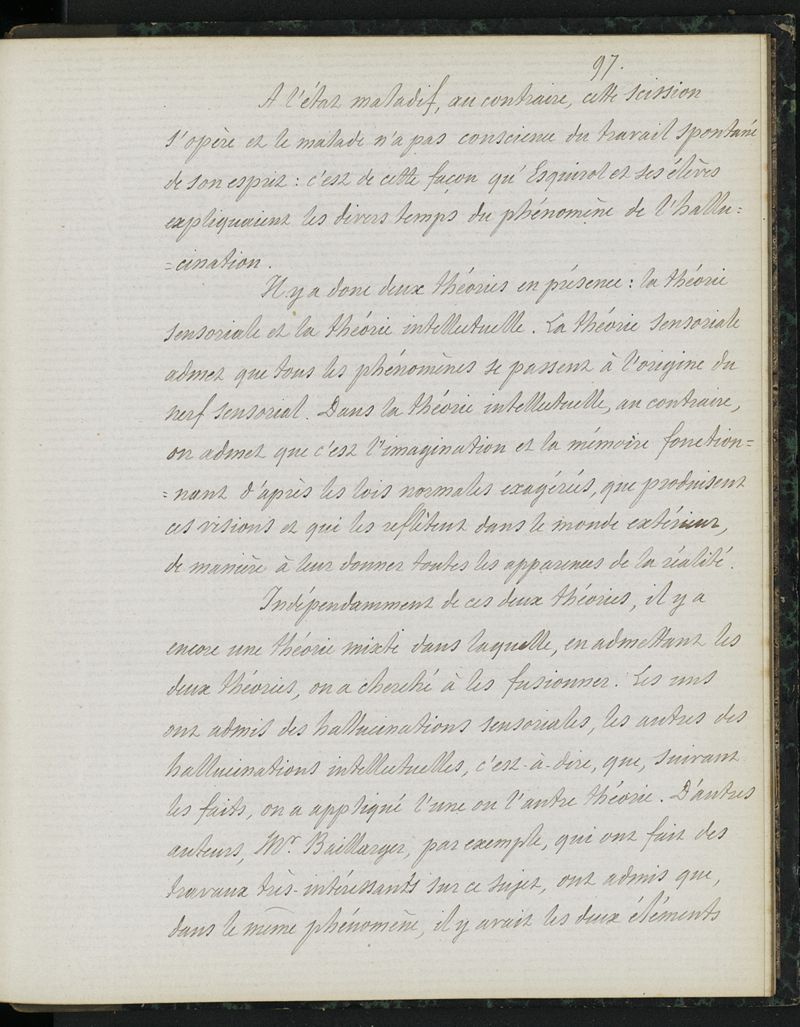 97.
A l'état maladif, au contraire, cette scission
s'opère et le malade n'a pas conscience du travail spontané
de son esprit : c'est de cette façon qu'Esquirol et ses élèves
expliquaient les divers temps du phénomène de l'hallu=
=cination.
Il y a donc deux théories en présence : la théorie
sensoriale et la théorie intellectuelle. La théorie sensoriale
admet que tous les phénomènes se passent à l'origine du
nerf sensorial. Dans la théorie intellectuelle, au contraire,
on admet que c'est l'imagination et la mémoire fonction=
=nant d'après les lois normales exagérées, que produisent
ces visions et qui les reflètent dans le monde extérieur,
de manière à leur donner toutes les apparences de la réalité.
Indépendamment de ces deux théories, il y a
encore une théorie mixte dans laquelle, en admettant les
deux théories, on a cherché à les fusionner. Les uns
ont admis des hallucinations sensoriales, les autres des
hallucinations intellectuelles, c'est-à-dire, que, suivant
les faits, on a appliqué l'une ou l'autre théorie. D'autres
auteurs, Mr Baillarger, par exemple, qui ont fait des
travaux très-intéressants sur ce sujet, ont admis que,
dans le même phénomène, il y avait les deux éléments